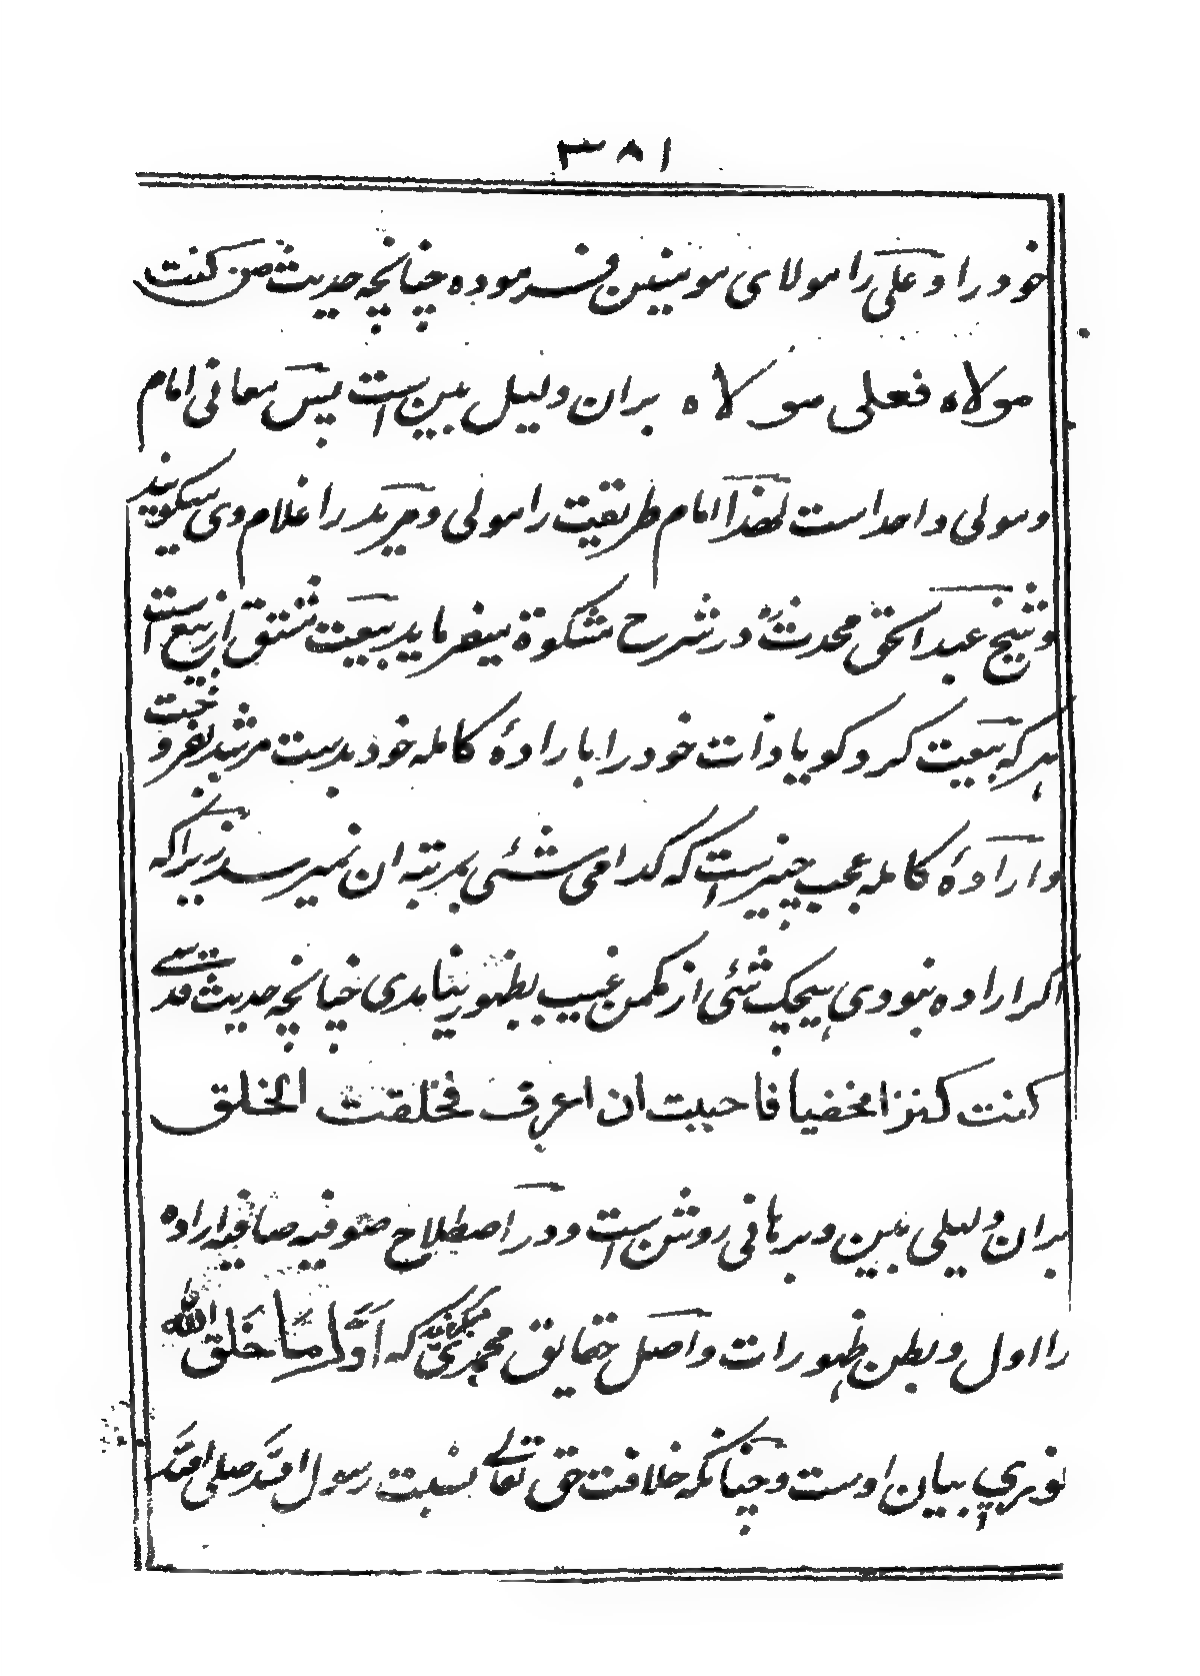 ۳۸۱
خود را و علی را مولای مومنین فرموده چنانچه حدیث من کنت
مولاه فعلی مولاه بران دلیل مبین است پس معانی امام
و مولی واحد است لهذا امام طریقیت را مولی و مرید را غلام وی میگویند
و شیخ عبدالحق محدث در شرح مشکوة میفرماید بیعت مشتق از بیع است
هر که بیعت کرد گویا ذات خود را با رادهٔ کامله خود بدست مرشد بفروخت
و ارادهٔ کامله عجب چیزیست که کدامی شئی بمرتبه ان نمیرسد زیرا که
اگر اراده نبودی هیچک شئی از مکمن غیب بظهور نیامدی چنانچه حدیث قدسے
کنت کنزا مخفیا فاحببت ان اعرف فخلقت الخلق
بران دلیلی مبین و برهانی روشن است و در اصطلاح صوفیه صافیه اراده
را اول و بطن ظهورات و اصل حقایق محمدی میگویند که اَوَّل مَا خَلَقَ الله
نوری بیان اوست و چنانکه خلافت حق تعالے نسبت رسول الله صلی الله